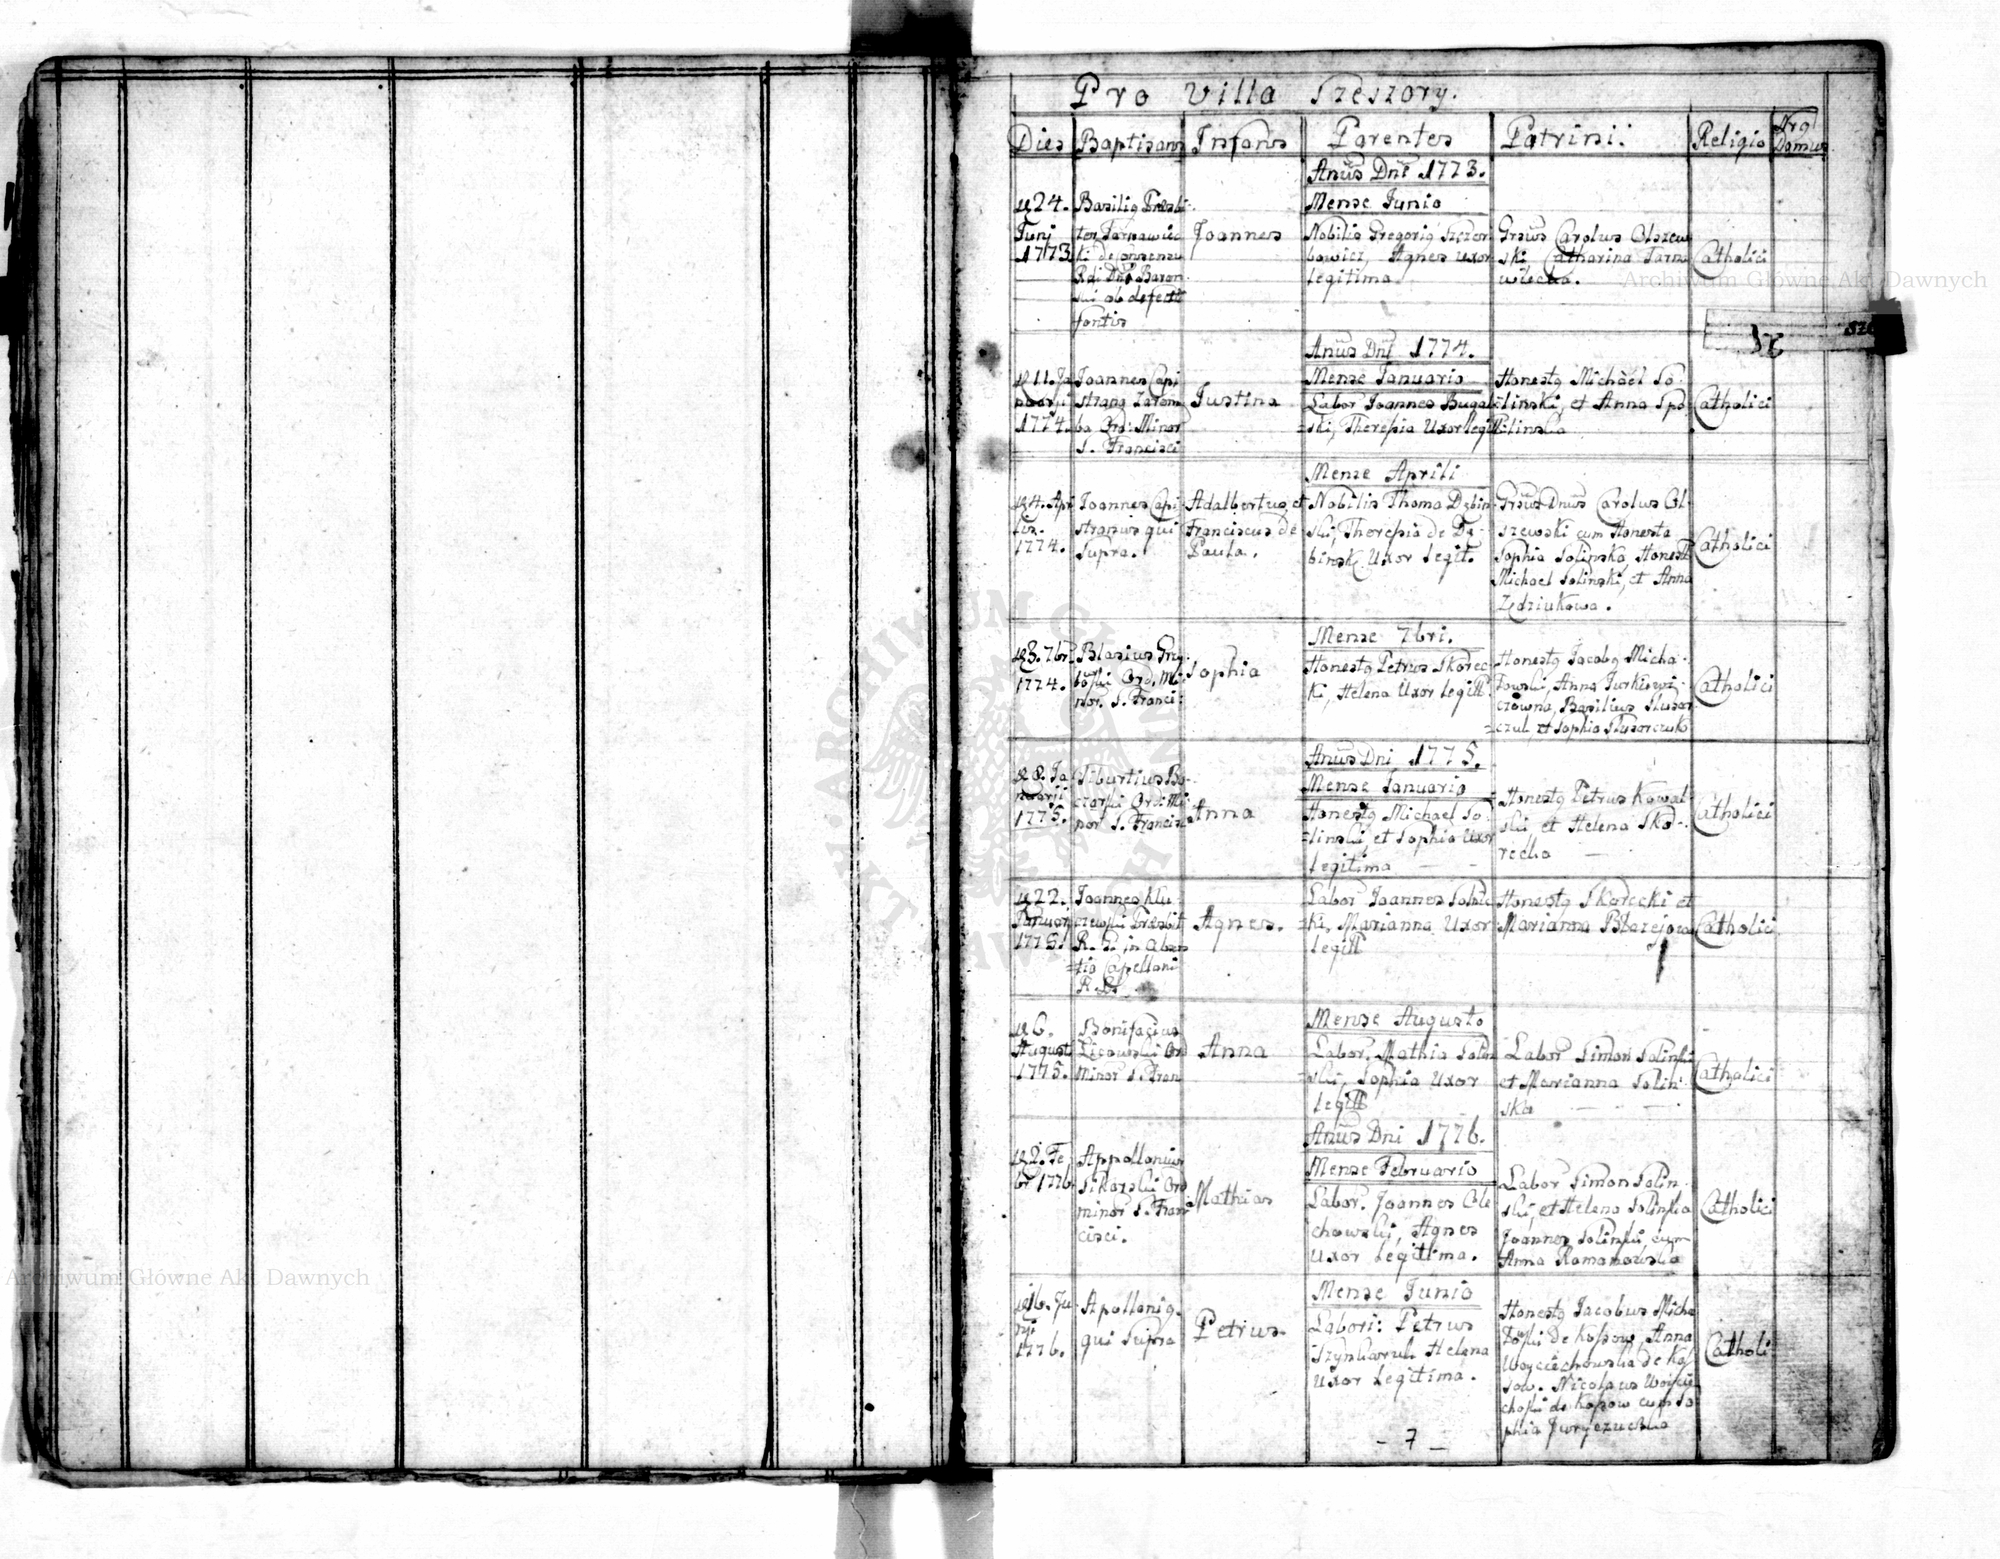 Pro Villa Szeszory.
Dies Baptisans Infans Parentes Patrini: Religio Nro Domus
Anus Dni 1773.
Mense Junio
24. Junj 1773
Basilig Presbi
ter Tarnawiec
ki de consensu
Rdi Dni Baron
ski ob defect
fontis
Joannes
Nobilis Gregorig Szczer
bowicz, Agnes Uxor
legitima
Grsus Carolus Olszew
ski, Catharina Tarna
wiecka.
Catholici
Anus Dni 1774.
Mense Januario
11. Ja
nuarji
1774.
Joannes Capi
strang Zarem
ba Ord: Minor
S. Francisci
Justina
Labor Joannes Bugal
ski, Theresia Uxor legitt
Honestg Michael So
linski, et Anna Spo
linska
Catholici
Mense Aprili
4. Apri
lis.
1774.
Joannes Capi
stranus qui
Supra.
Adalbertus, et
Franciscus de
Paula.
Nobilis Thoma Dębin
ski, Theresia de Dę
binsk Uxor Legit.
Grsus Dnus Carolus Ol
szewski cum Honesta
Sophia Solinska, Honest
Michael Solinski, et Anna
Zędziukowa.
Catholici
Mense 7bri.
8. 7br
1774.
Blasius Grę
boski Ord. Mi
nor. S. Franci:
Sophia
Honestg Petrus Skorec
ki, Helena Uxor legitt
Honestg Jacobg Micha
łowski, Anna Jurkiewi
czowna, Basilius Slusar
czuk, et Sophia Slusarczuko
Catholici
Anus Dni 1775.
Mense Januario
8. Ja
nuarji
1775.
Tiburtius Bo
czarski Ord: Mi
nor S. Francisc
Anna
Honestg Michael So
linski, et Sophia Uxor
legitima
Honestg Petrus Kowal
ski, et Helena Sko
recka
Catholici
22.
Januar
1775.
Joannes Klu
czewski Presbit
R. L. in absen
tia Capellani
R. L.
Agnes.
Labor Joannes Solnic
ki, Marianna Uxor
legitt
Honestg Skorecki et
Marianna Błazejowa
Catholici
Mense Augusto
6.
August
1775.
Bonifacius
Ord
Minor S. Fran
Anna
Labor. Mathia Solin
ski, Sophia Uxor
legitt
Labor Simon Solinski
et Marianna Solin
ska
Catholici
Anus Dni 1776.
Mense Februario
2. Fe
br 1776
Appollonius
Sikorski Ord
minor S. Fran
cisci.
Mathias
Labor. Joannes Ole
chowski, Agnes
Uxor Legitima.
Labor Simon Solin
ski, et Helena Solinska
Joannes Solinski cum
Anna Romanowska
Catholici
Mense Junio
16. Ju
nji
1776.
Apollonig
qui Supra
Petrus
Labori: Petrus
Szynkaruk Helena
Uxor Legitima.
Honestg Jacobus Micha
łoski de Kossow, Anna
Woyciechowska de Kos
sow. Nicolaus Woycie
choski de Kossow cum So
phia
Catholi
- 7 -
Archiwum Główne Akt Dawnych
Archiwum Główne Akt Dawnych
ARCHIWUM GŁÓWNE AKT DAWNYCH